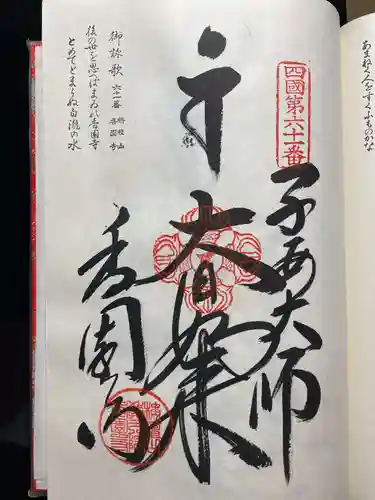 あまねく人をすくふものかな
四國第六十一番
子安大師
大日如来
香園寺
御詠歌 六十一番 栴檀山 香園寺
後の世を思へばまゐれ香園寺
とめてとまらぬ白滝の水